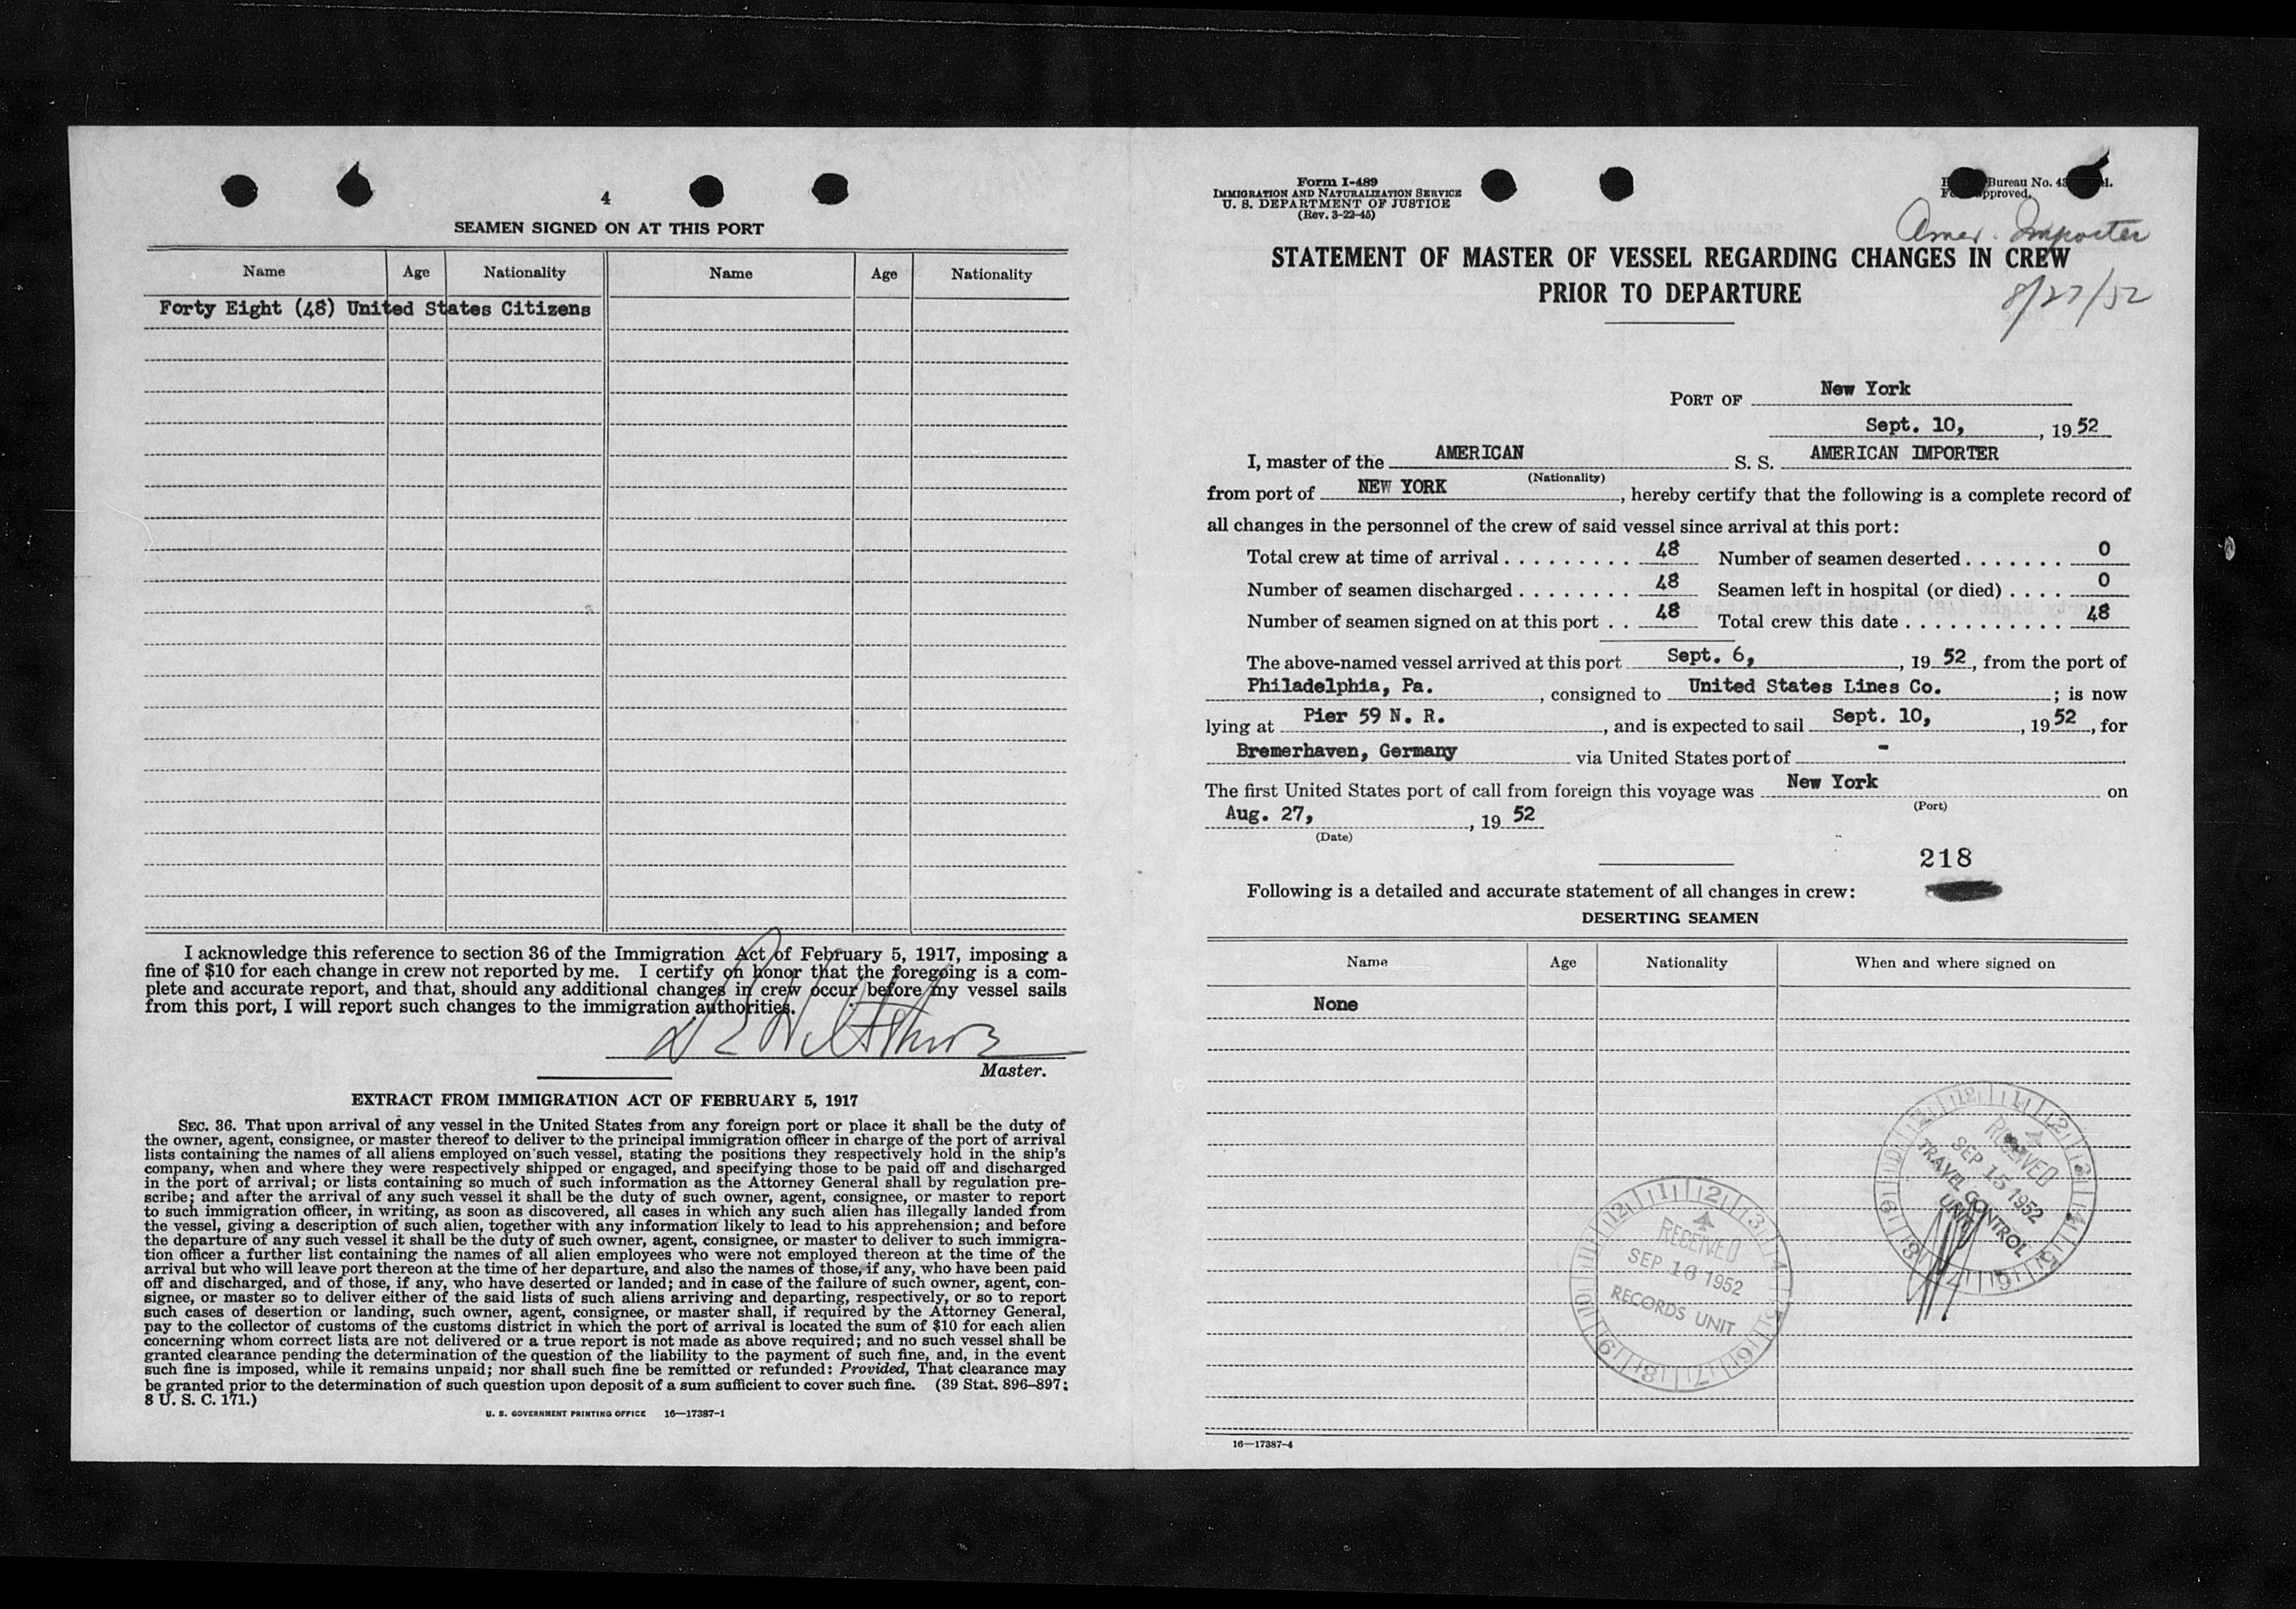 4
SEAMEN SIGNED ON AT THIS PORT
Name Age Nationality Name Age Nationality
Forty Eight (48) United States Citizens
I acknowledge this reference to section 36 of the Immigration Act of February 5, 1917, imposing a
fine of $10 for each change in crew not reported by me. I certify on honor that the foregoing is a com-
plete and accurate report, and that, should any additional changes in crew occur before my vessel sails
from this port, I will report such changes to the immigration authorities.
Master.
EXTRACT FROM IMMIGRATION ACT OF FEBRUARY 5, 1917
SEC. 36. That upon arrival of any vessel in the United States from any foreign port or place it shall be the duty of
the owner, agent, consignee, or master thereof to deliver to the principal immigration officer in charge of the port of arrival
lists containing the names of all aliens employed on such vessel, stating the positions they respectively hold in the ship's
company, when and where they were respectively shipped or engaged, and specifying those to be paid off and discharged
in the port of arrival; or lists containing so much of such information as the Attorney General shall by regulation pre-
scribe; and after the arrival of any such vessel it shall be the duty of such owner, agent, consignee, or master to report
to such immigration officer, in writing, as soon as discovered, all cases in which any such alien has illegally landed from
the vessel, giving a description of such alien, together with any information likely to lead to his apprehension; and before
the departure of any such vessel it shall be the duty of such owner, agent, consignee, or master to deliver to such immigra-
tion officer a further list containing the names of all alien employees who were not employed thereon at the time of the
arrival but who will leave port thereon at the time of her departure, and also the names of those, if any, who have been paid
off and discharged, and of those, if any, who have deserted or landed; and in case of the failure of such owner, agent, con-
signee, or master so to deliver either of the said lists of such aliens arriving and departing, respectively, or so to report
such cases of desertion or landing, such owner, agent, consignee, or master shall, if required by the Attorney General,
pay to the collector of customs of the customs district in which the port of arrival is located the sum of $10 for each alien
concerning whom correct lists are not delivered or a true report is not made as above required; and no such vessel shall be
granted clearance pending the determination of the question of the liability to the payment of such fine, and, in the event
such fine is imposed, while it remains unpaid; nor shall such fine be remitted or refunded: Provided, That clearance may
be granted prior to the determination of such question upon deposit of a sum sufficient to cover such fine. (39 Stat. 896–897;
8 U. S. C. 171.)
U. S. GOVERNMENT PRINTING OFFICE 16—17387-1
Form I-489
IMMIGRATION AND NATURALIZATION SERVICE
U. S. DEPARTMENT OF JUSTICE
(Rev. 3-22-45)
Bureau No.
approved.
Amer. Importer
STATEMENT OF MASTER OF VESSEL REGARDING CHANGES IN CREW
PRIOR TO DEPARTURE
8/27/52
PORT OF New York
Sept. 10, , 1952
I, master of the AMERICAN S. S. AMERICAN IMPORTER
(Nationality)
from port of NEW YORK , hereby certify that the following is a complete record of
all changes in the personnel of the crew of said vessel since arrival at this port:
Total crew at time of arrival . . . . . . . . . 48 Number of seamen deserted . . . . . . . 0
Number of seamen discharged . . . . . . . . 48 Seamen left in hospital (or died) . . . . 0
Number of seamen signed on at this port . . 48 Total crew this date . . . . . . . . . . . 48
The above-named vessel arrived at this port Sept. 6, , 1952, from the port of
Philadelphia, Pa. , consigned to United States Lines Co. ; is now
lying at Pier 59 N. R. , and is expected to sail Sept. 10, , 1952, for
Bremerhaven, Germany via United States port of -
The first United States port of call from foreign this voyage was New York on
(Port)
Aug. 27, , 1952
(Date)
218
Following is a detailed and accurate statement of all changes in crew:
DESERTING SEAMEN
Name Age Nationality When and where signed on
None
RECEIVED
SEP 15 1952
TRAVEL CONTROL
UNIT
RECEIVED
SEP 16 1952
RECORDS UNIT
16—17387-4